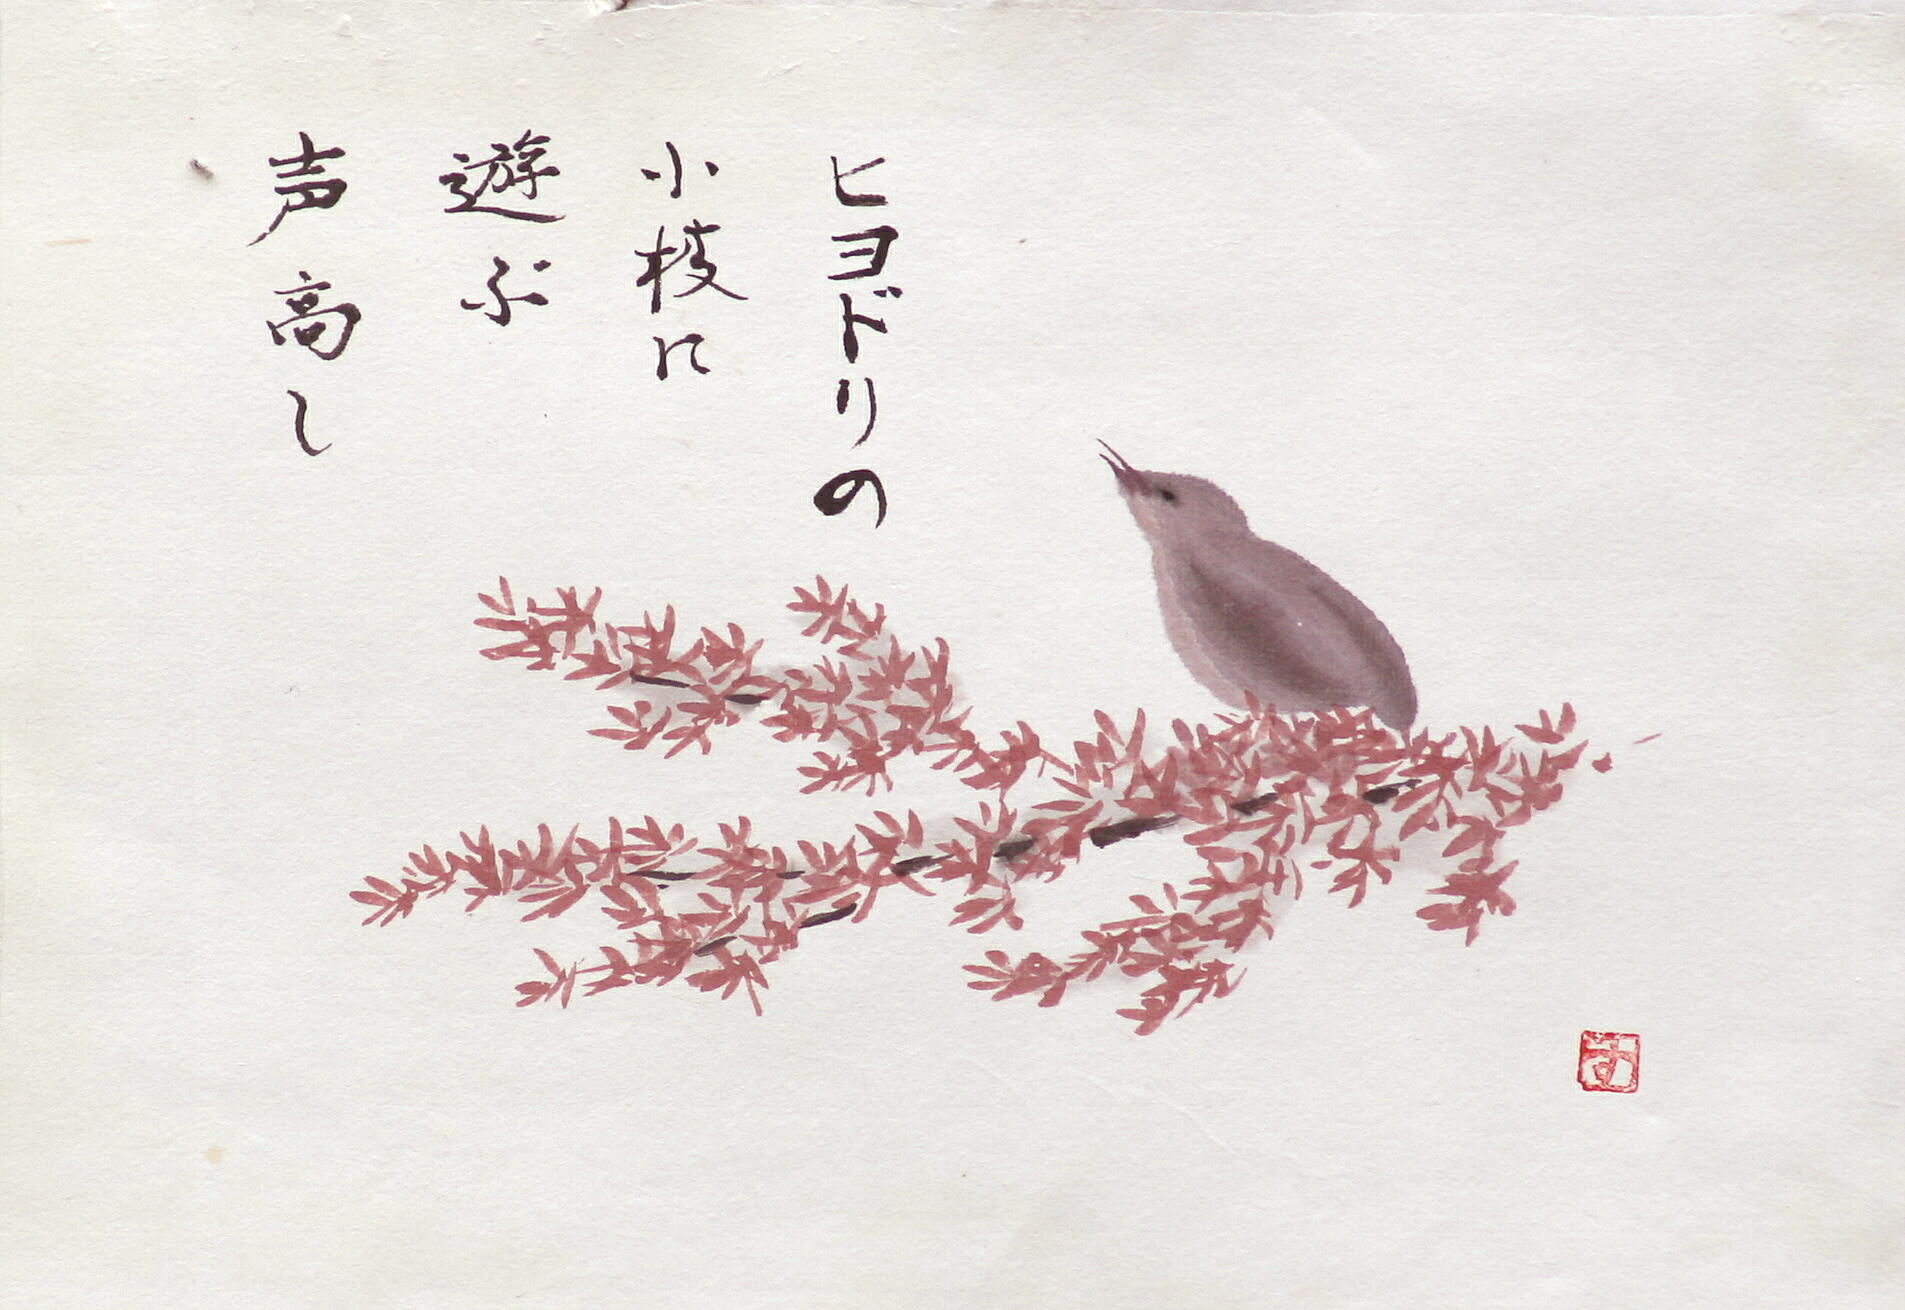 ヒヨドリの
小枝に
遊ぶ
声高し
す